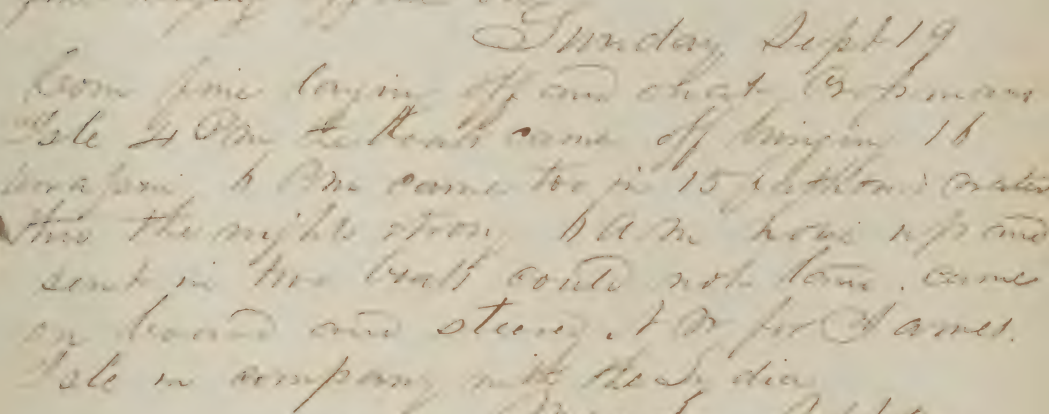 Sunday Sept 19
Com fine laying off and on at Chathmans
Isle 4 Pm the boats came off bringin 16
terapin 6 Pm came too in 15 fathoms water
thru the night strong 6 AM hove up and
sent in two boats could not land. came
on board and steerg N W for James.
Isle in company with the Lydia